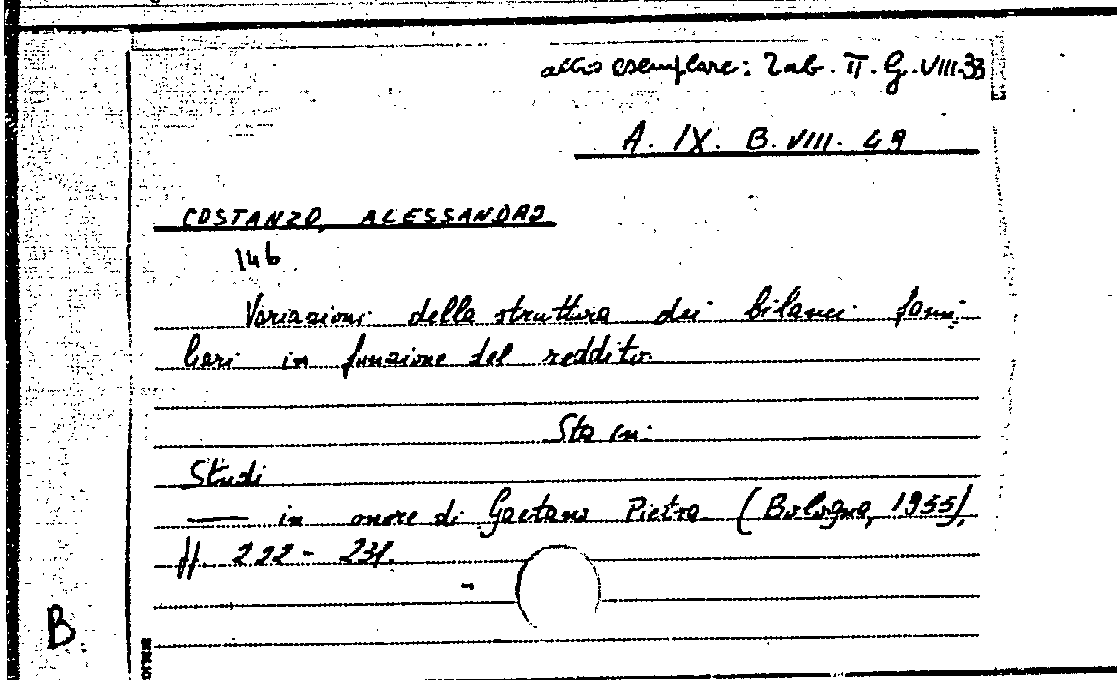 altro esemplare: Lab. II. G. VIII.33
A. IX. B. VIII. 49
COSTANZO, ALESSANDRO
146
Variazioni della struttura dei bilanci fami-
liari in funzione del reddito
Sta in:
Studi
— in onore di Gaetano Pietra (Bologna, 1955),
pp. 222 - 231.
B